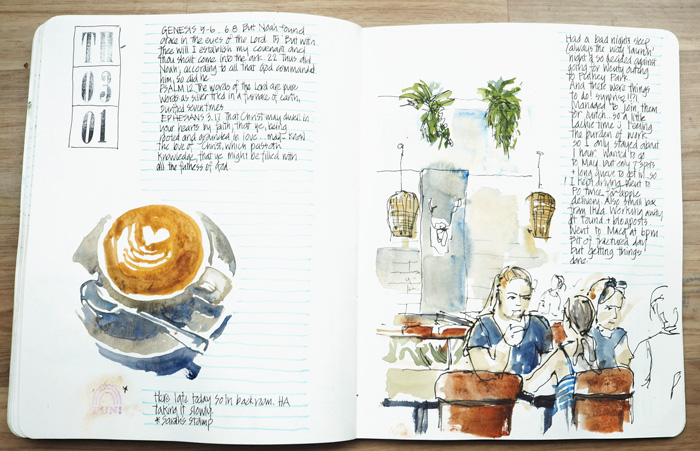 TH
03
01
GENESIS 5-6.. 6.8 But Noah found
grace in the eyes of the Lord. 18 But with
thee will I establish my covenant; and
thou shalt come into the ark.. 22 Thus did
Noah; according to all that God commanded
him, so did he
PSALM 12 The words of the Lord are pure
words: as silver tried in a furnace of earth,
purified seven times
EPHESIANS 3.17 That Christ may dwell in
your hearts by faith; that ye, being
rooted and grounded in love... may.. know
the love of Christ, which passeth
knowledge, that ye might be filled with
all the fulness of God.
Here late today so in back room. HA
taking it slowly.
* Sarah's stamp
Had a bad nights sleep
(always the way 'launch'
night) & so decided against
going for Wkly outing
to Putney Park.
And there were things
to do! surprise!!?!
Managed to join them
for lunch.. so a little
catchie time & feeling
the burden of work
so I only stayed about
1 hour. Wanted to go
to May but only 73pts
+ long queue to get in.. so
I kept driving. Went to
PO twice for apple
delivery. Also small box
from Ikea. Working away
at found + blog posts.
Went to Macq at 6pm
Bit of fractured day
but getting things
done.